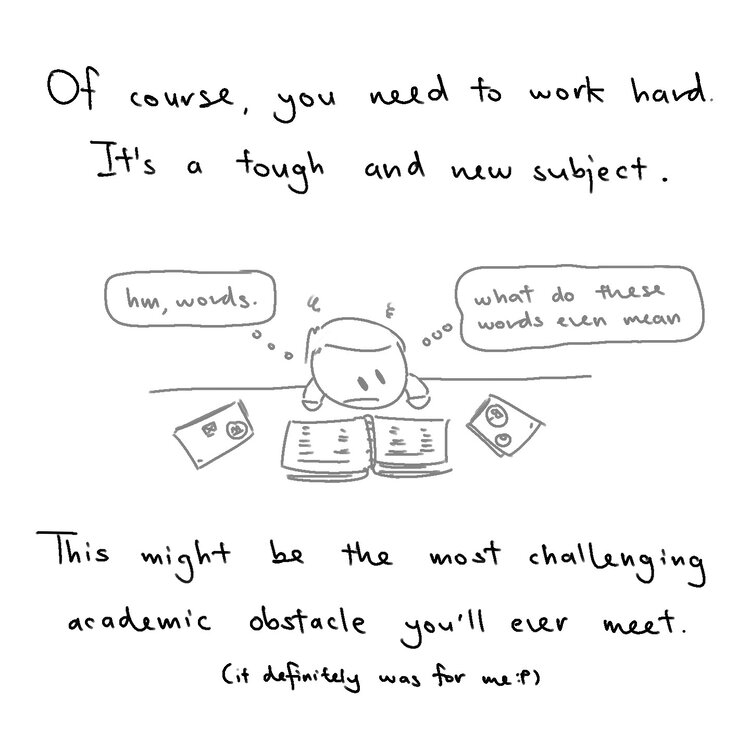 Of course, you need to work hard.
It's a tough and new subject.
hm, words.
what do these
words even mean
This might be the most challenging
academic obstacle you'll ever meet.
(it definitely was for me :P)